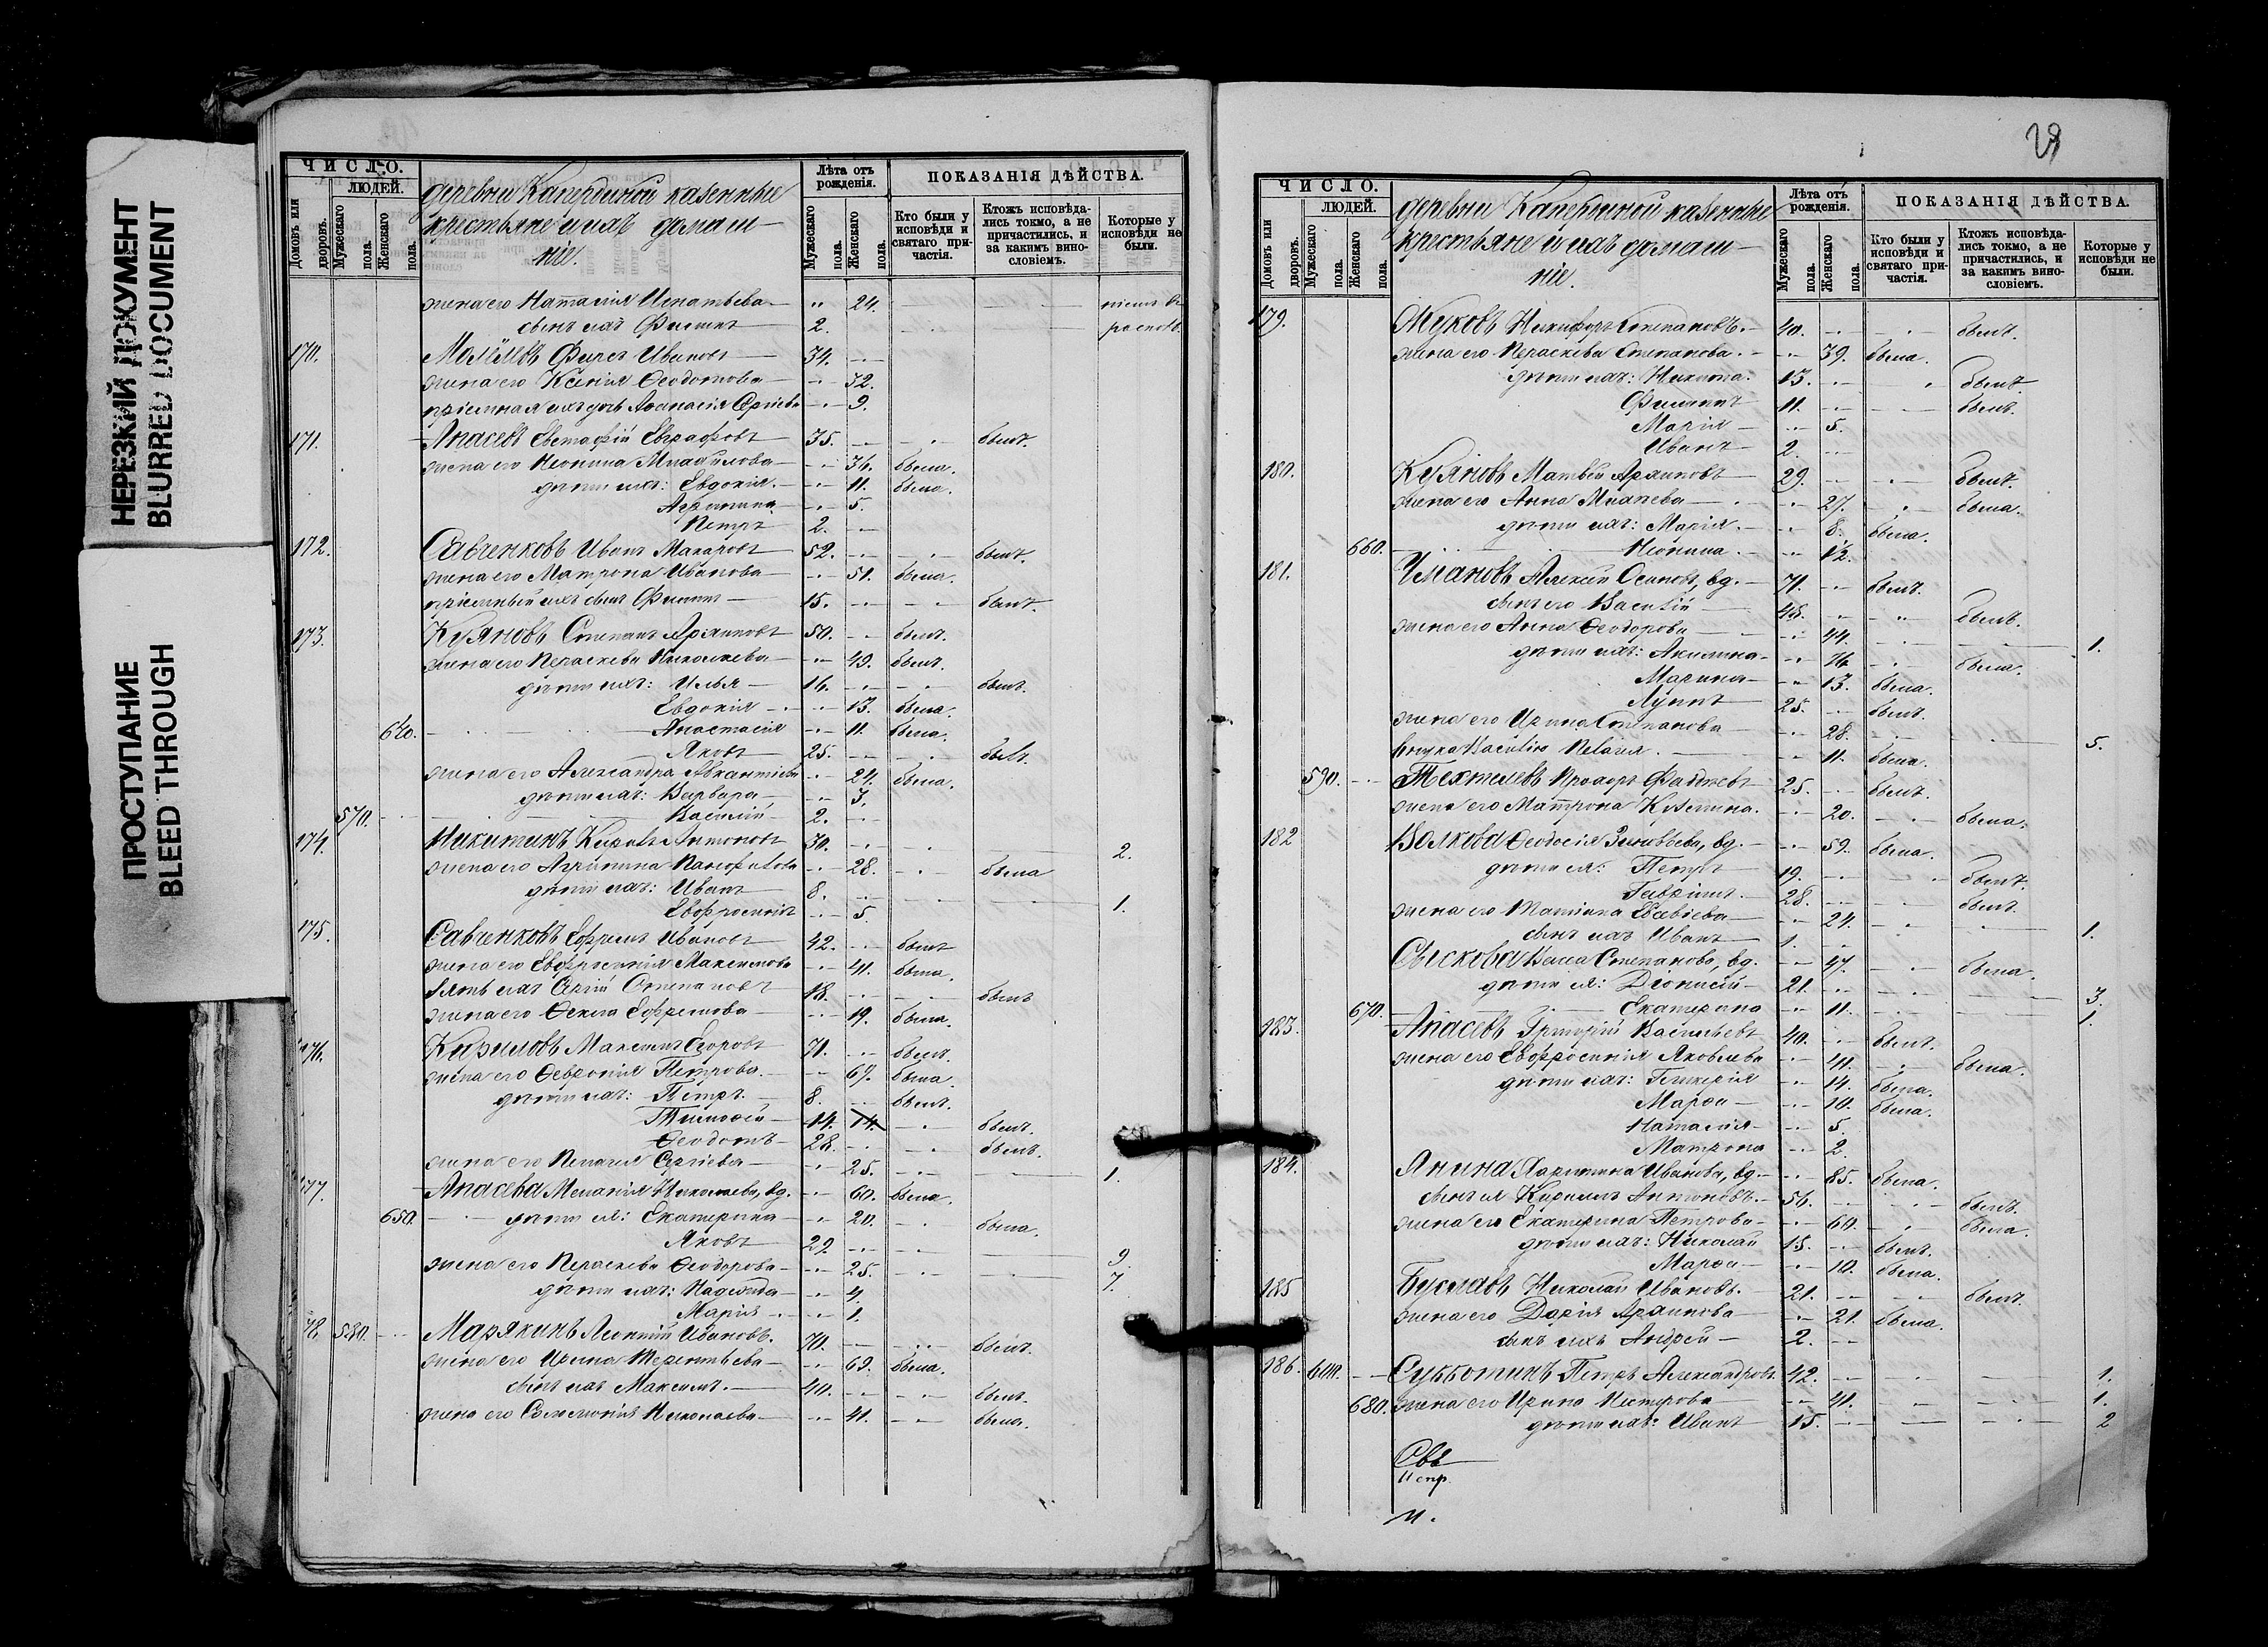 НЕРЕЗКИЙ ДОКУМЕНТ
BLURRED DOCUMENT
ПРОСТУПАНИЕ
BLEED THROUGH
ЧИСЛО.
ЛЮДЕЙ.
Домовъ или дворовъ.
Мужескаго пола.
Женскаго пола.
деревни казенные
крестьяне и ихъ домаш-
ніе.
Лѣта отъ рожденія.
Мужескаго пола.
Женскаго пола.
ПОКАЗАНІЯ ДѢЙСТВА.
Кто были у исповѣди и святаго при-частія.
Ктожъ исповѣда-лись токмо, а не причастились, и за какимъ вино-словіемъ.
Которые у исповѣди не были.
жена его Наталія Игнатьева 24.
сынъ ихъ Филипъ 2.
170. Иванов 34.
жена его Ксенія Ѳеодотова 32.
пріемная ихъ дочь Аѳанасія Сергіева 9.
171. Апасевъ Евстафій Евграфовъ 35. былъ.
жена его Неонила Михайлова 36. была.
дѣти ихъ: Евдокія 11. была.
Агрипина 5.
Петръ 2.
172. Савченковъ Иванъ Макаровъ 52. былъ.
жена его Матрона Иванова 51. была.
пріемный ихъ сынъ Филипъ 15. былъ.
173. Кузяновъ Степанъ Архиповъ 50. былъ.
жена его Параскева 49. былъ.
дѣти ихъ: Илья 16. былъ.
Евдокія 13. была.
640. Анастасія 11. была.
Яковъ 25. былъ.
жена его Александра 24. была.
дѣти ихъ: Варвара 3.
570. Василій 2.
174. Никитинъ Кирилъ Антоновъ 30. 2.
жена его Агрипина Панфилова 28. была
дѣти ихъ: Иванъ 8. 1.
Евфросинія 5.
175. Савченковъ Ефремъ Ивановъ 42. былъ
жена его Евфросинія Максимова 41. была.
зять ихъ Сергій Степановъ 18. былъ
жена его Ѳекла Ефремова 19. была.
176. Кириловъ Максимъ Егоровъ 71. былъ.
жена его Ѳевронія Петрова 67. была.
дѣти ихъ: Петръ 8. былъ.
Тимоѳей 14. 14. былъ.
Ѳеодотъ 28. былъ.
жена его Пелагія Сергіева 25. 1.
177. Апасева Меланія Николаева, вд. 60. была.
650. дѣти ея: Екатерина 20. была.
Яковъ 29. 9.
жена его Параскева Ѳеодорова 25. 7.
дѣти ихъ: Надежда 4.
Марія 1.
78. 580. Марякинъ Леонтій Ивановъ. 70. былъ.
жена его Ирина Терентьева 69. была.
сынъ ихъ Максимъ. 40. былъ.
жена его Соломонія Николаева 41. была.
29
ЧИСЛО.
ЛЮДЕЙ.
Домовъ или дворовъ.
Мужескаго пола.
Женскаго пола.
деревни казенные
крестьяне и ихъ домаш-
ніе.
Лѣта отъ рожденія.
Мужескаго пола.
Женскаго пола.
ПОКАЗАНІЯ ДѢЙСТВА.
Кто были у исповѣди и святаго при-частія.
Ктожъ исповѣда-лись токмо, а не причастились, и за какимъ вино-словіемъ.
Которые у исповѣди не были.
179. Жуковъ Никифоръ Степановъ. 40. былъ.
жена его Параскева Степанова. 39. была.
дѣти ихъ: Никита. 13. былъ
Филипъ 11. былъ.
Марія 5.
Иванъ 2.
180. Кузяновъ Матвѣй Архиповъ 29. былъ.
жена его Анна Михеева 27. была.
дѣти ихъ: Марія. 8. была.
660. Неонила. 1/2.
181. Улановъ Алексій Осиповъ, вд. 71. былъ.
сынъ его Василій 48. былъ.
жена его Анна Ѳеодорова 44. 1.
дѣти ихъ: Акилина 16. была.
Марина 13. была.
Лупъ 25. былъ.
жена его Ирина Степанова 28. 5.
внучка Василія Пелагія. 11. была.
590. Прохоръ 25. былъ.
жена его Матрона Кузьмина. 20. была.
182 Волкова Ѳеодосія Зиновьева, вд. 59. была.
дѣти ея: Петръ 19. былъ.
Гавріилъ. 28. былъ.
жена его Татіана Евсевіева 24. 1.
сынъ ихъ Иванъ 1.
Васса Степанова, вд. 47. была.
дѣти ея: Діонисій 21. 3.
670. Екатерина 11. 1.
183. Апасевъ Григорій Васильевъ 40. былъ.
жена его Евфросинія Яковлева 41. была.
дѣти ихъ: Гликерія 14. была.
Марѳа 10. была.
Наталія 5.
Матрона 2.
184. Янина Харитина Иванова, вд. 85. была.
сынъ ея Кирилъ Антоновъ. 56. былъ.
жена его Екатерина Петрова 60. была.
дѣти ихъ: Николай 15. былъ.
Марѳа 10. была.
185 Буслаевъ Николай Ивановъ. 21. былъ.
жена его Дарія Архипова 21. была.
сынъ ихъ Андрей 2.
186. 600. Субботинъ Петръ Александровъ. 42. 1.
680. жена его Ирина Нестерова 41. 1.
дѣти ихъ: Иванъ 15. 2